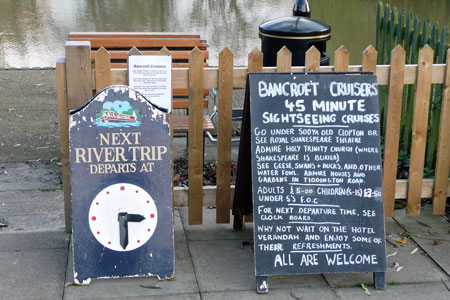 Bancroft Cruises
NEXT
RIVER TRIP
DEPARTS AT
BANCROFT CRUISERS
45 MINUTE
SIGHTSEEING CRUISES
GO UNDER 500YR OLD CLOPTON BR
SEE ROYAL SHAKESPEARE THEATRE
ADMIRE HOLY TRINITY CHURCH (WHERE
SHAKESPEARE IS BURIED)
SEE GEESE, SWANS & DUCKS, AND OTHER
WATER FOWL. ADMIRE HOUSES AND
GARDENS IN TIDDINGTON ROAD.
ADULTS £5-00 CHILDREN
UNDER 5'S F.O.C.
FOR NEXT DEPARTURE TIME, SEE
CLOCK BOARD.
WHY NOT WAIT ON THE HOTEL
VERANDAH AND ENJOY SOME OF
THEIR REFRESHMENTS.
ALL ARE WELCOME